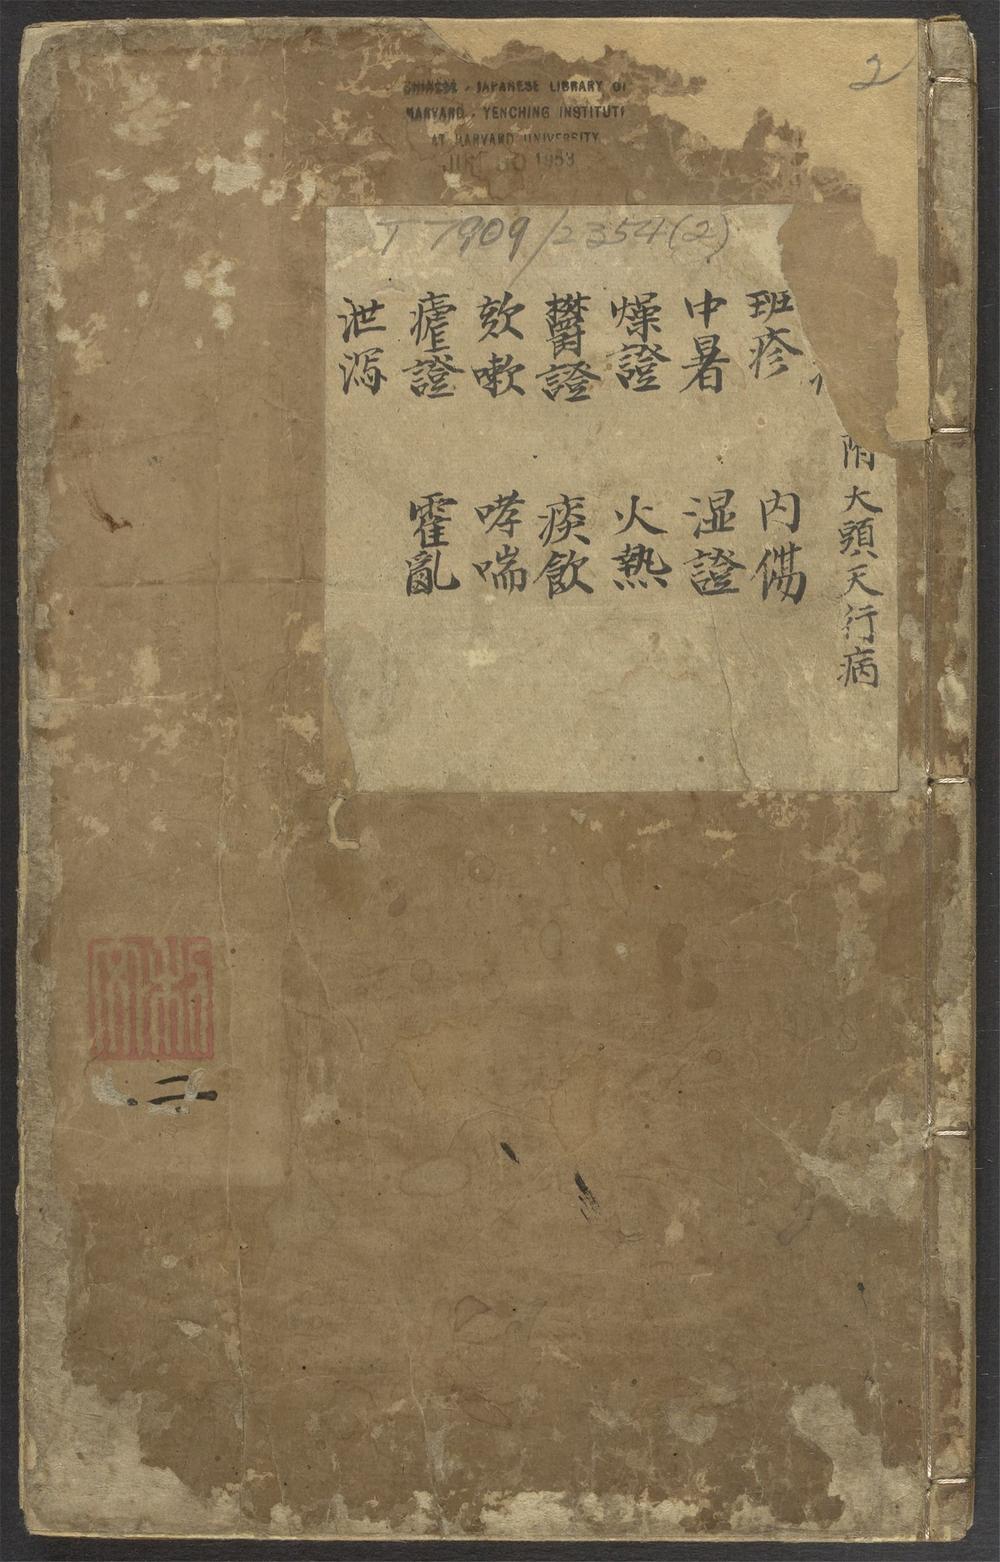 2
CHINESE - JAPANESE LIBRARY OF
HARVARD - YENCHING INSTITUTE
AT HARVARD UNIVERSITY
1953
T 7909/2354(2)
附大頭天行病
班疹 內傷
中暑 湿證
燥證 火熱
鬱證 痰飲
欬嗽 哮喘
瘧證 霍亂
泄瀉
二